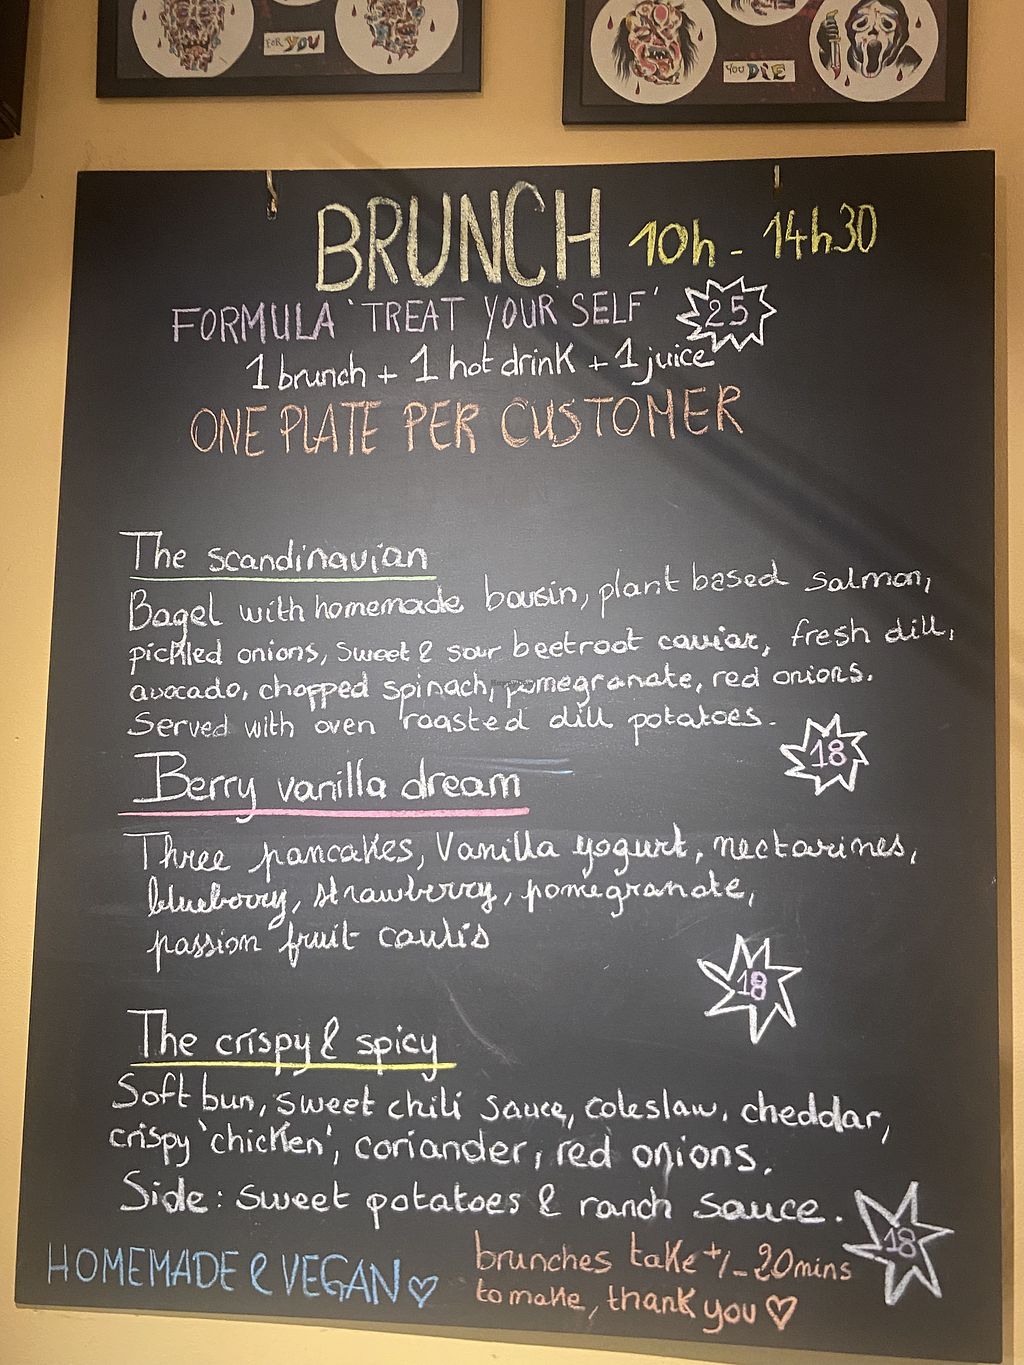 FOR YOU
YOU DIE
BRUNCH 10h - 14h30
FORMULA 'TREAT YOUR SELF' 25
1 brunch + 1 hot drink + 1 juice
ONE PLATE PER CUSTOMER
The scandinavian
Bagel with homemade bousin, plant based salmon,
pickled onions, sweet & sour beetroot caviar, fresh dill,
avocado, chopped spinach, pomegranate, red onions.
Served with oven roasted dill potatoes.
18
Berry vanilla dream
Three pancakes, Vanilla yogurt, nectarines,
blueberry, strawberry, pomegranate,
passion fruit coulis
18
The crispy & spicy
Soft bun, sweet chili sauce, coleslaw, cheddar,
crispy 'chicken', coriander, red onions.
Side: sweet potatoes & ranch sauce.
18
HOMEMADE & VEGAN ♡
brunches take +/- 20mins
to make, thank you ♡